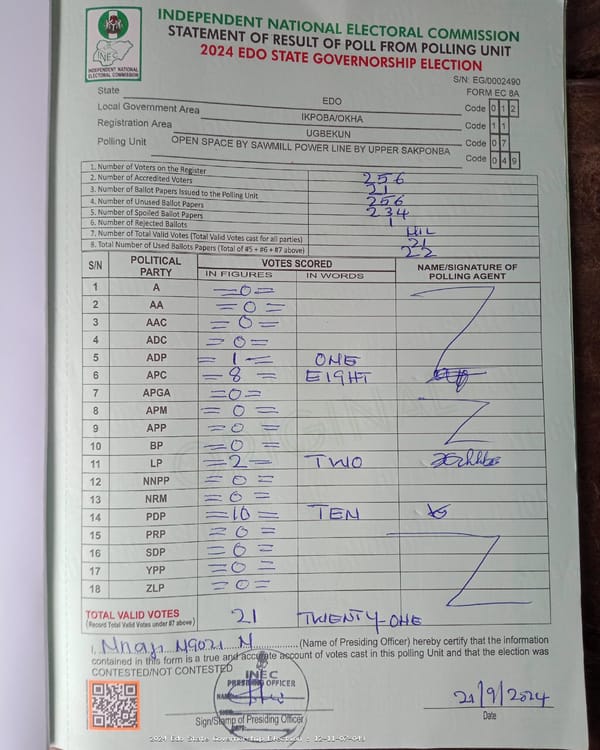 INDEPENDENT NATIONAL ELECTORAL COMMISSION
STATEMENT OF RESULT OF POLL FROM POLLING UNIT
2024 EDO STATE GOVERNORSHIP ELECTION
INEC
INDEPENDENT NATIONAL
ELECTORAL COMMISSION
S/N: EG/0002490
FORM EC 8A
State EDO Code 0 1 2
Local Government Area IKPOBA/OKHA Code 1 1
Registration Area UGBEKUN Code 0 7
Polling Unit OPEN SPACE BY SAWMILL POWER LINE BY UPPER SAKPONBA Code 0 4 9
1. Number of Voters on the Register 256
2. Number of Accredited Voters 21
3. Number of Ballot Papers Issued to the Polling Unit 256
4. Number of Unused Ballot Papers 234
5. Number of Spoiled Ballot Papers 1
6. Number of Rejected Ballots NIL
7. Number of Total Valid Votes (Total Valid Votes cast for all parties) 21
8. Total Number of Used Ballots Papers (Total of #5 + #6 + #7 above) 22
S/N POLITICAL PARTY VOTES SCORED NAME/SIGNATURE OF POLLING AGENT
IN FIGURES IN WORDS
1 A =0=
2 AA =0=
3 AAC =0=
4 ADC =0=
5 ADP =1= ONE
6 APC =8= EIGHT
7 APGA =0=
8 APM =0=
9 APP =0=
10 BP =0=
11 LP =2= TWO
12 NNPP =0=
13 NRM =0=
14 PDP =10= TEN
15 PRP =0=
16 SDP =0=
17 YPP =0=
18 ZLP =0=
TOTAL VALID VOTES 21 TWENTY-ONE
(Record Total Valid Votes under #7 above)
I, Nnaji Ngozi N (Name of Presiding Officer) hereby certify that the information
contained in this form is a true and accurate account of votes cast in this polling Unit and that the election was
CONTESTED/NOT CONTESTED
INEC
PRESIDING OFFICER
NAME
SIGN
DATE
21/9/2024
Sign/Stamp of Presiding Officer
Date
2024 Edo State Governorship Election : 12-11-07-049